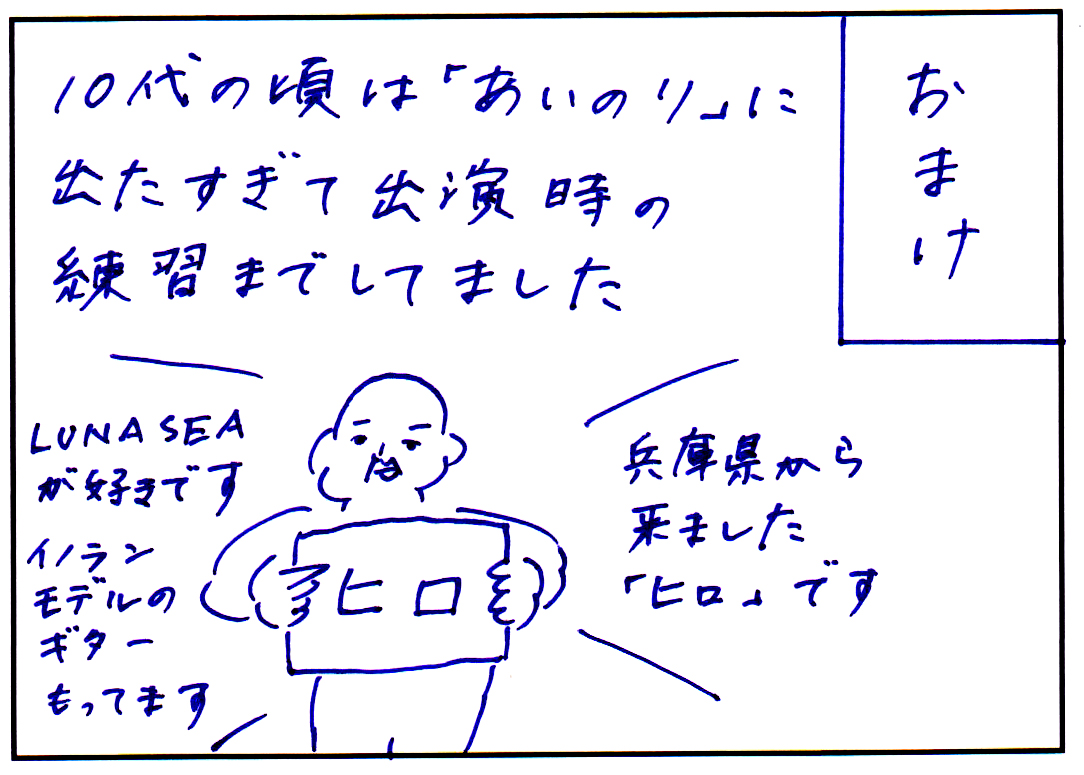 おまけ
10代の頃は「あいのり」に
出たすぎて出演時の
練習までしてました
兵庫県から
来ました
「ヒロ」です
ヒロ
LUNA SEA
が好きです
イノラン
モデルの
ギター
もってます